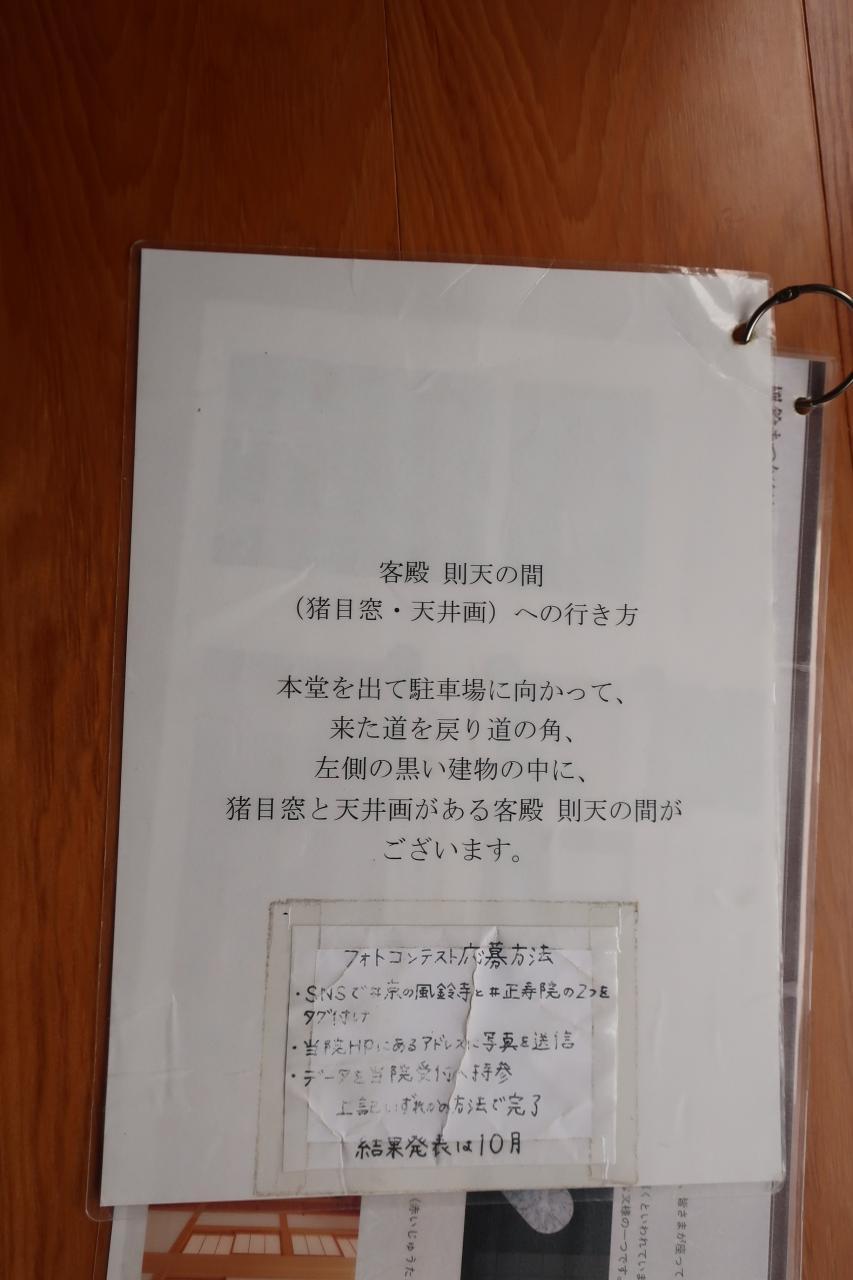 客殿 則天の間
（猪目窓・天井画）への行き方
本堂を出て駐車場に向かって、
来た道を戻り道の角、
左側の黒い建物の中に、
猪目窓と天井画がある客殿 則天の間が
ございます。
フォトコンテスト応募方法
・SNSで#京の風鈴寺と#正寿院の2つを
タグ付け
・当院HPにあるアドレスに写真を送信
・データを当院受付へ持参
上記いずれかの方法で完了
結果発表は10月
（赤いじゅうた
、皆さまが座って
くといわれていま
文様の一つです。